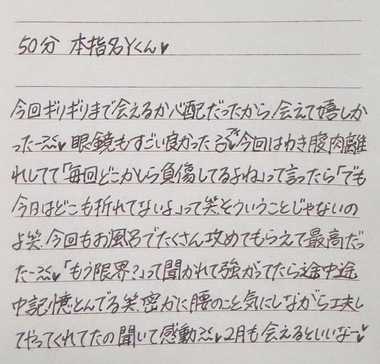 50分 本指名Yくん♥
今回ギリギリまで会えるか心配だったから、会えて嬉しか
った〜ﾝ♥ 眼鏡もすごい良かったる 今回はわき腹肉離
れしてて「毎回どこかしら負傷してるよね」って言ったら「でも
今日はどこも折れてないよ」って笑 そういうことじゃないの
よ笑 今回もお風呂でたくさん攻めてもらえて最高だっ
た〜ﾝ♥「もう限界？」って聞かれて強がってたら途中途
中記憶とんでる笑 密かに腰のこと気にしながら工夫し
てやってくれてたの聞いて感動ﾝ♥ 2月も会えるといいなー♥